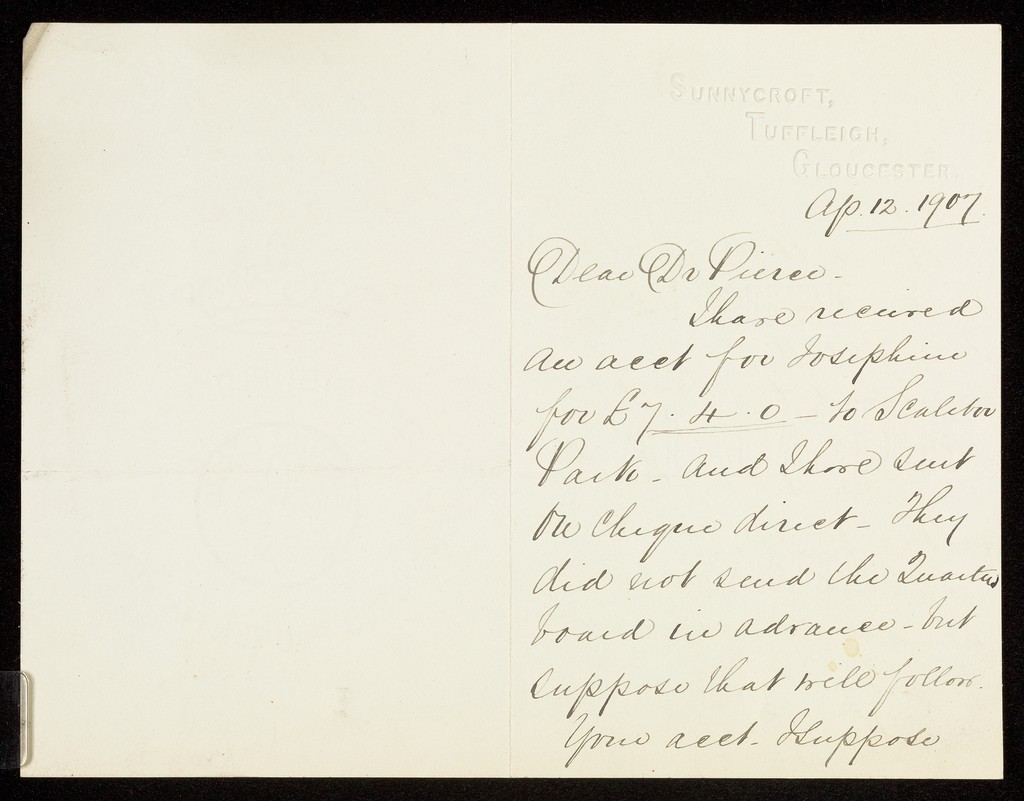 SUNNYCROFT,
TUFFLEIGH,
GLOUCESTER.
Ap. 12. 1907.
Dear Dr Pierce -
I have received
an acct for Josephine
for £7. 4. 0 - to Scalebor
Park - and I have sent
the cheque direct - They
did not send the Quarters
board in advance - but
suppose that will follow.
Your acct - I suppose